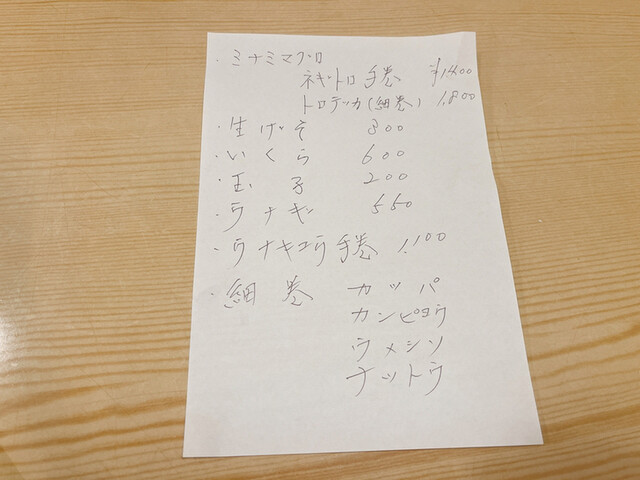 ・ミナミマグロ
ネギトロ手巻 ¥1400
トロテッカ(細巻) 1,800
・生げそ 300
・いくら 600
・玉子 200
・ウナギ 550
・ウナキユウ手巻 1,100
・細巻 カッパ
カンピヨウ
ウメシソ
ナットウ